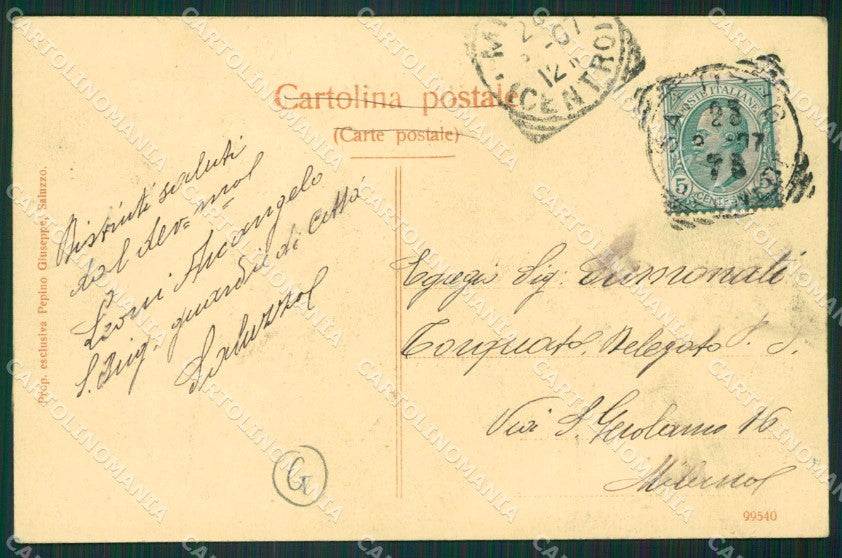 Cartolina postale
(Carte postale)
MI
CENTRO
23
07
12
POSTE ITALIANE
23
07
5
5
CENTESIMI
Prop. esclusiva Pepino Giuseppe, Saluzzo.
Distinti saluti
dal dev=mo
Leoni Arcangelo
guardia di Città
Saluzzo
Egregio Sig.
Torquato Delegato P. S.
Via S. Gerolamo 16
Milano
G
99540
CARTOLINOMANIA